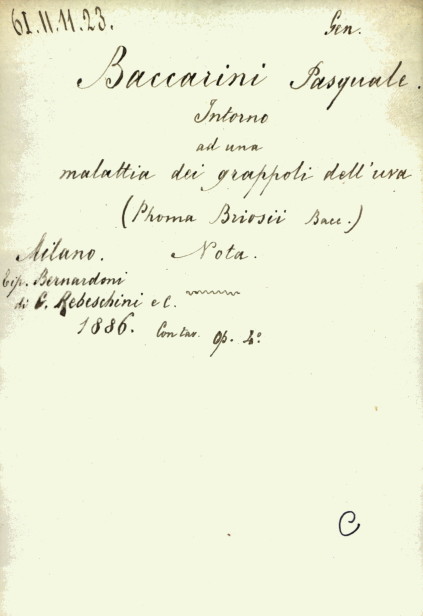 61.11.11.23. Gen.
Baccarini Pasquale.
Intorno
ad una
malattia dei grappoli dell'uva
(Phoma Briosii Bacc.)
Milano. Nota.
Tip. Bernardoni
di C. Rebeschini e C.
1886. Con tav. Op. 4º
C